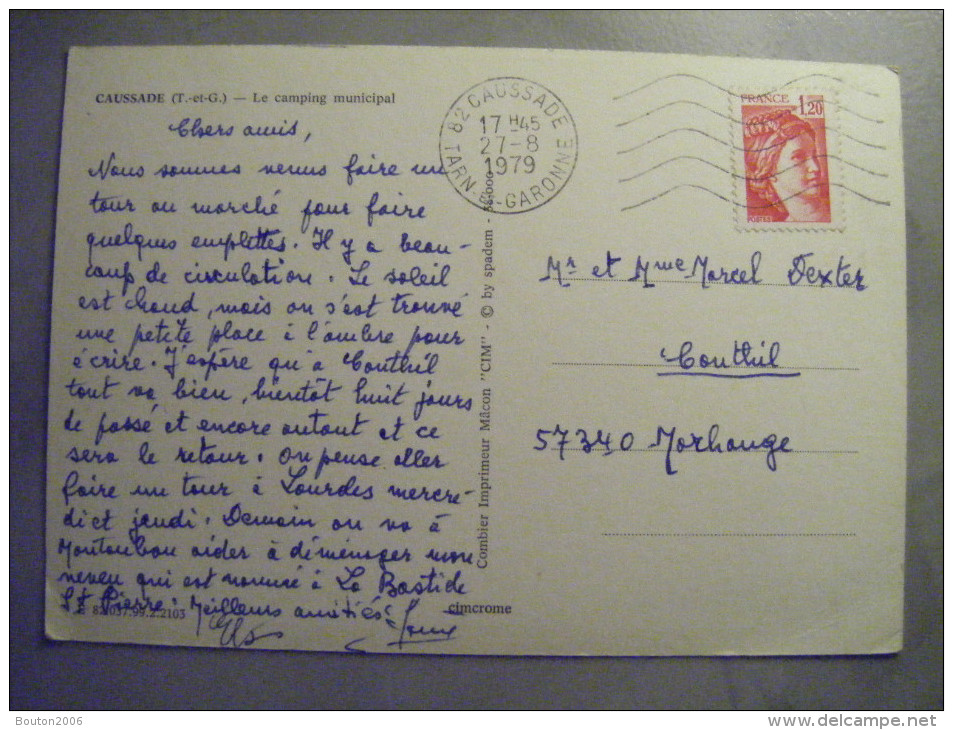 CAUSSADE (T.-et-G.) — Le camping municipal
Chers amis,
Nous sommes venus faire un
tour au marché pour faire
quelques emplettes. Il y a beau-
coup de circulation. Le soleil
est chaud, mais on s'est trouvé
une petite place à l'ombre pour
écrire. J'espère qu'à Conthil
tout va bien, bientôt huit jours
de passé et encore autant et ce
sera le retour. On pense aller
faire un tour à Lourdes mercre-
di et jeudi. Demain on va à
Montauban aider à déménager mon
neveu qui est nommé à La Bastide
St Pierre. Meilleurs amitiés
82.037.99.2.2103
cimcrome
Combier Imprimeur Mâcon "CIM" - © by spadem -
82 CAUSSADE
17 H45
27-8
1979
TARN-ET-GARONNE
FRANCE
1,20
POSTES
Mr et Mme Marcel Dexter
Conthil
57340 Morhange
Bouton2006
www.delcampe.net